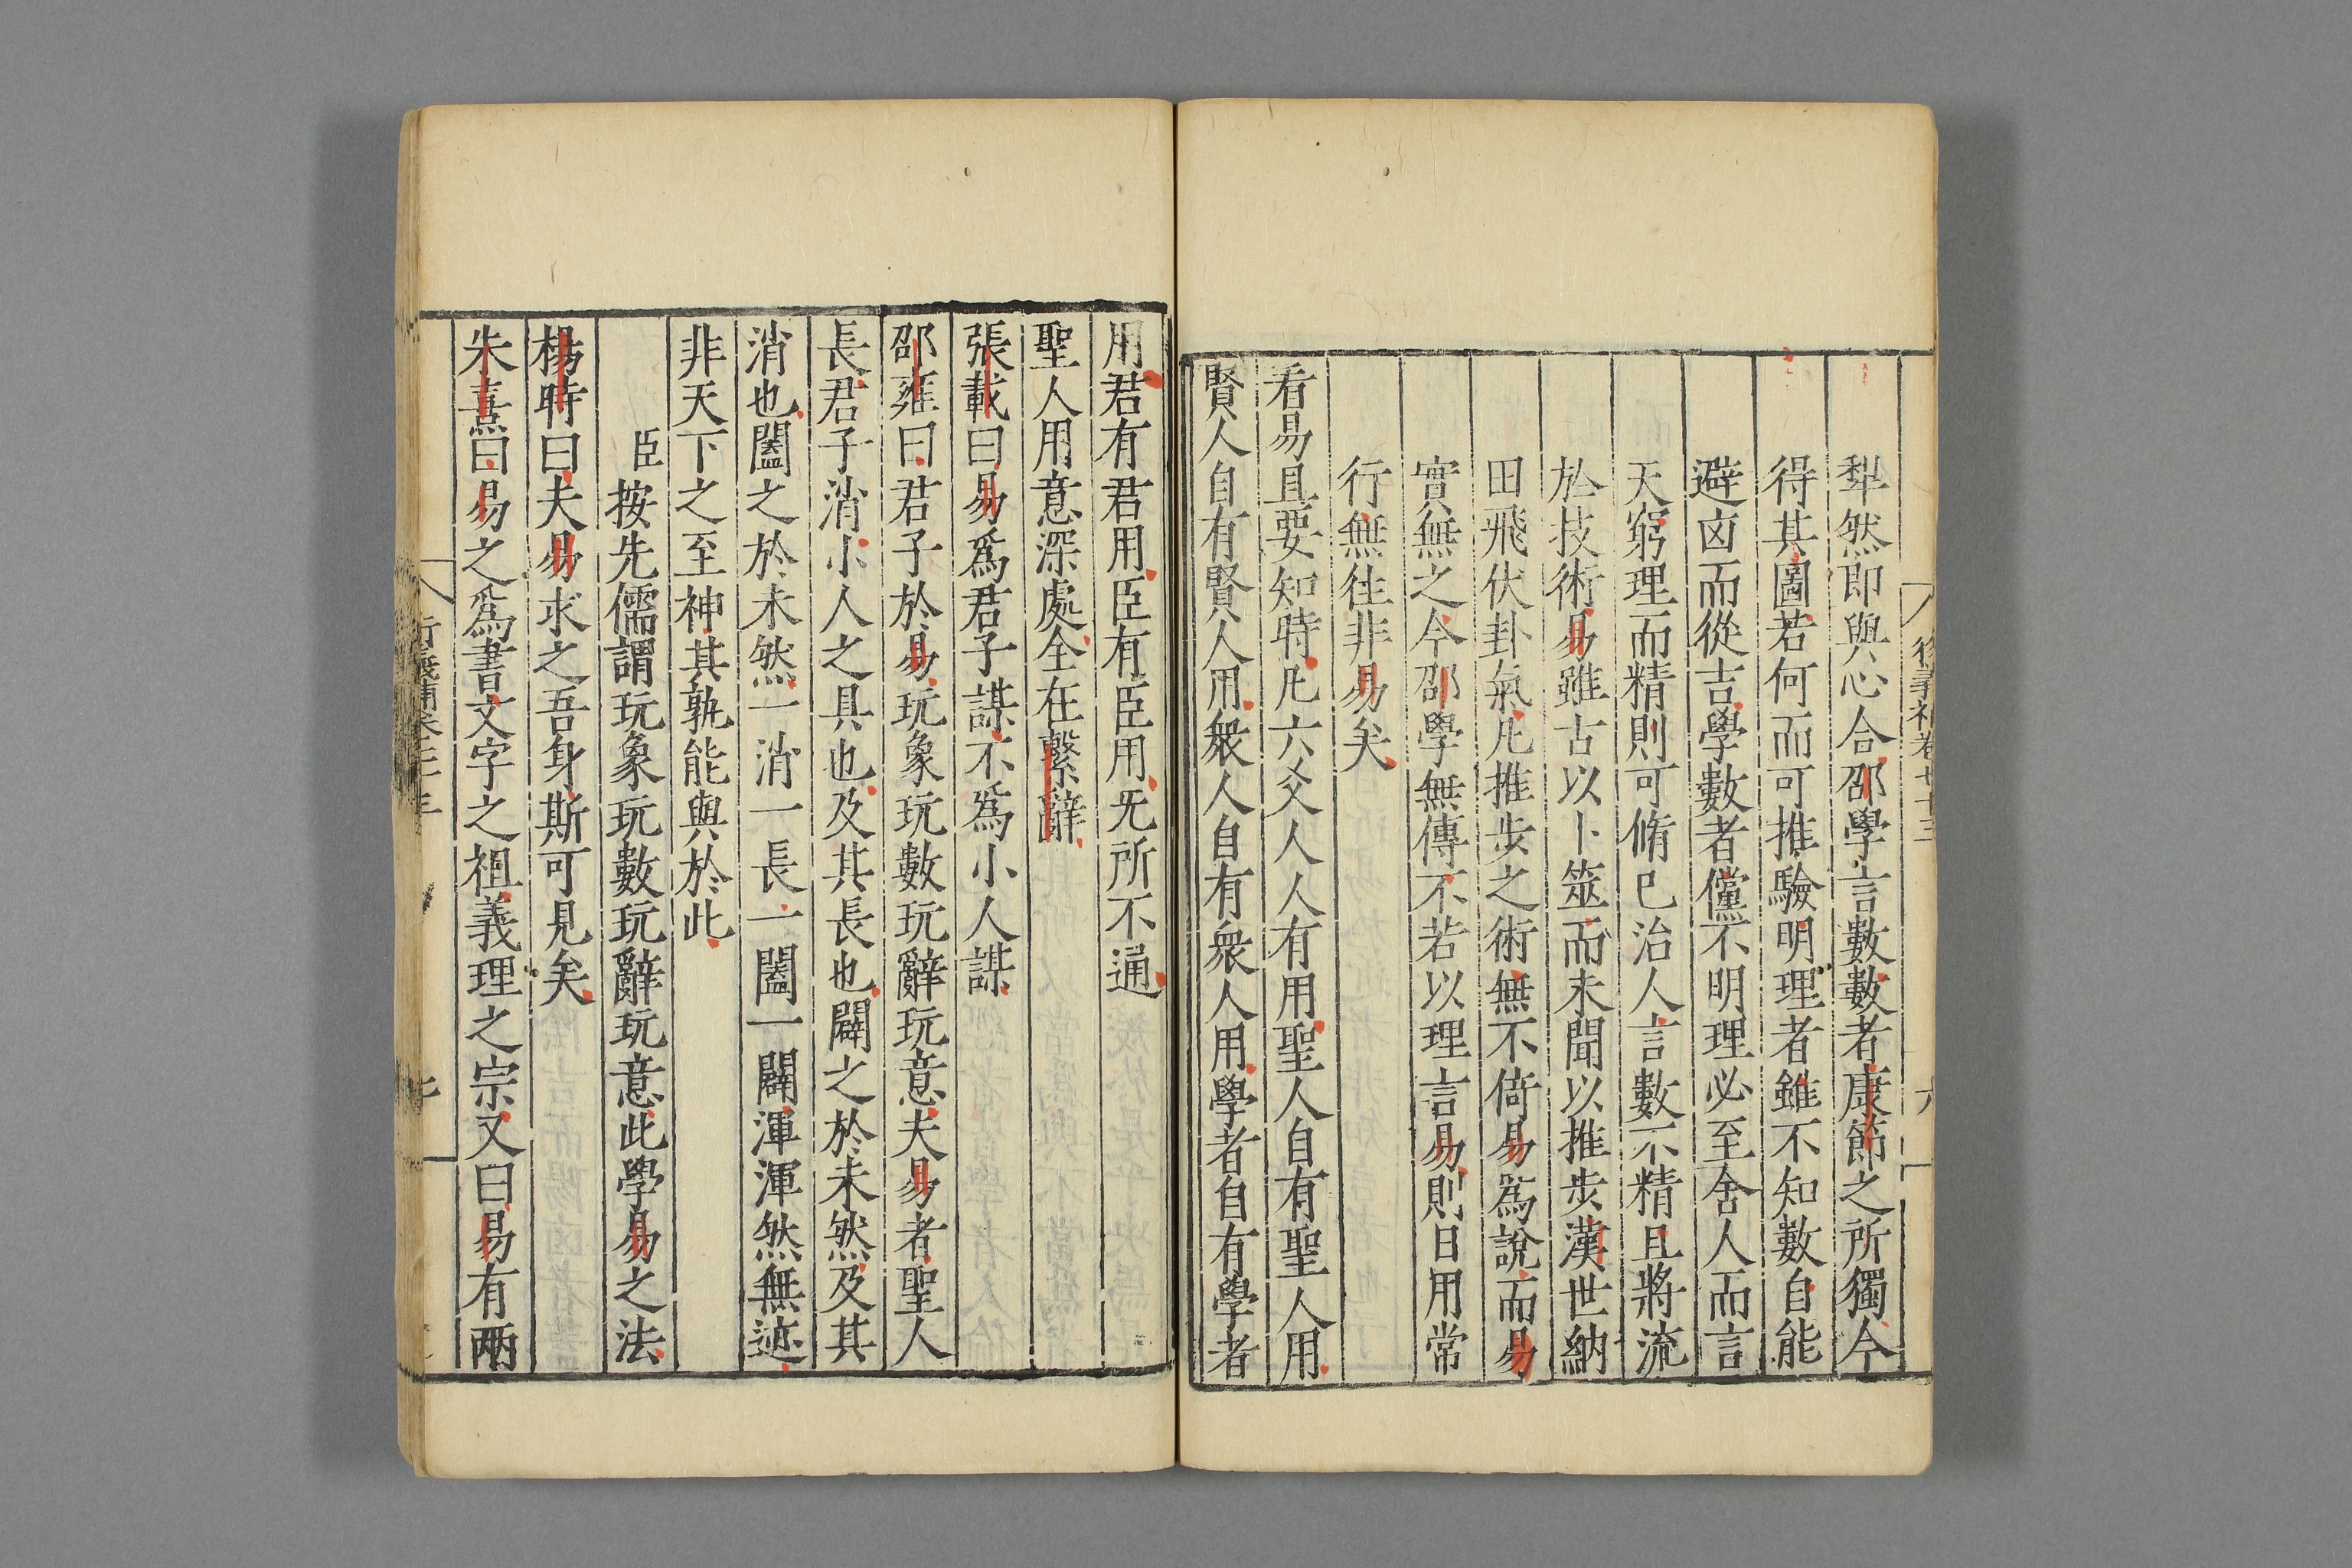 犁然即與心合邵學言數數者康節之所獨今
得其圖若何而可推驗明理者雖不知數自能
避㐫而從吉學數者儻不明理必至舍人而言
天窮理而精則可脩巳治人言數不精且將流
於技術易雖古以卜筮而未聞以推步漢世納
田飛伏卦氣凡推步之術無不倚易爲說而易
實無之今邵學無傳不若以理言易則日用常
行無往非易矣
看易且要知時凡六爻人人有用聖人自有聖人用
賢人自有賢人用衆人自有衆人用學者自有學者
用君有君用臣有臣用旡所不通
聖人用意深處全在繫辭
張載曰易爲君子謀不爲小人謀
邵雍曰君子於易玩象玩數玩辭玩意夫易者聖人
長君子消小人之具也及其長也闢之於未然及其
消也闔之於未然一消一長一闔一闢渾渾然無迹
非天下之至神其孰能與於此
臣按先儒謂玩象玩數玩辭玩意此學易之法
楊時曰夫易求之吾身斯可見矣
朱熹曰易之爲書文字之祖義理之宗又曰易有兩